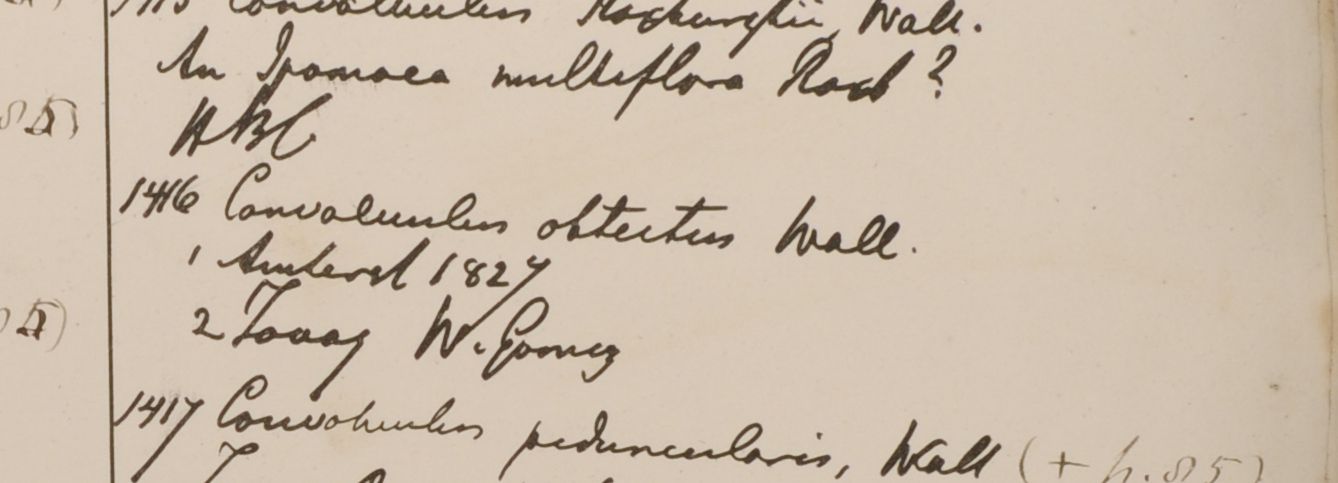 1415 Convolvulus Roxburghii, Wall.
An Ipomaea multiflora Roxb?
HBC
1416 Convolvulus obtectus Wall.
1 Amherst 1827
2 Tavoy W. Gomez
1417 Convolvulus peduncularis, Wall (+ p. 85)